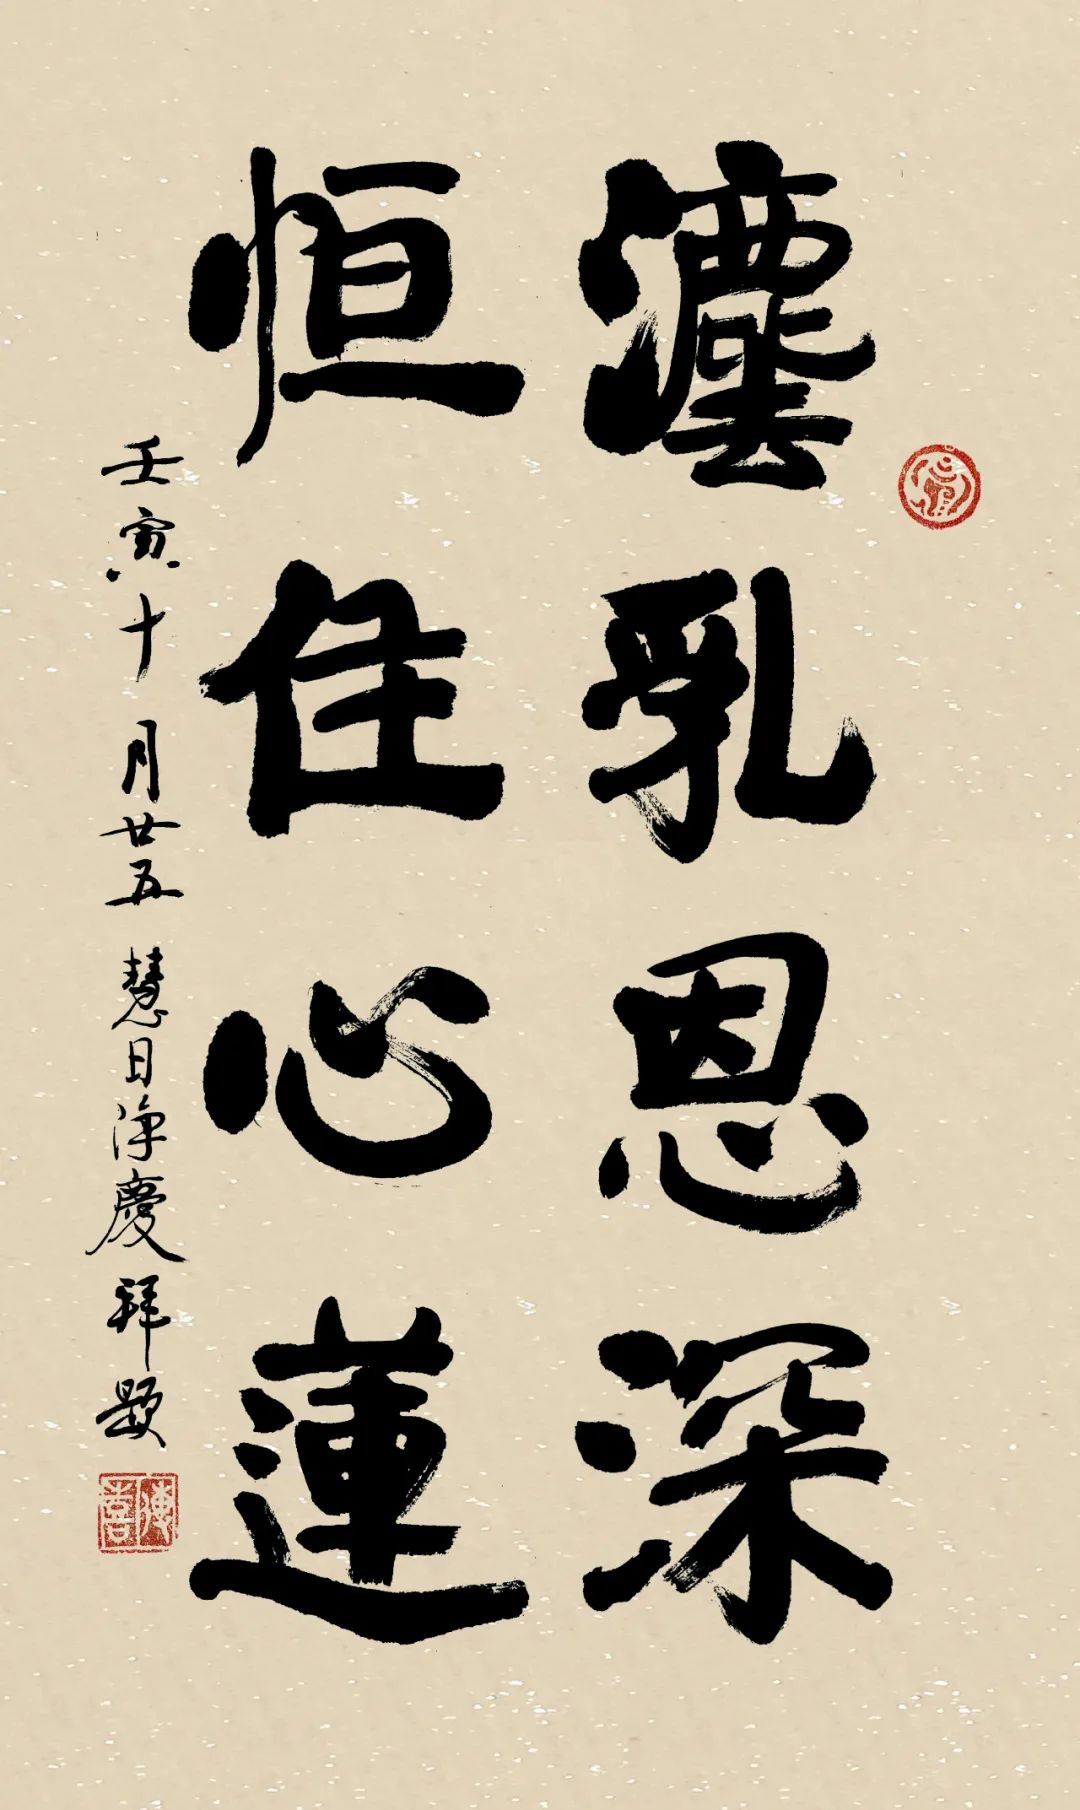 灋乳恩深
恒住心蓮
壬寅十月廿五慧日浄慶拜題
傳喜